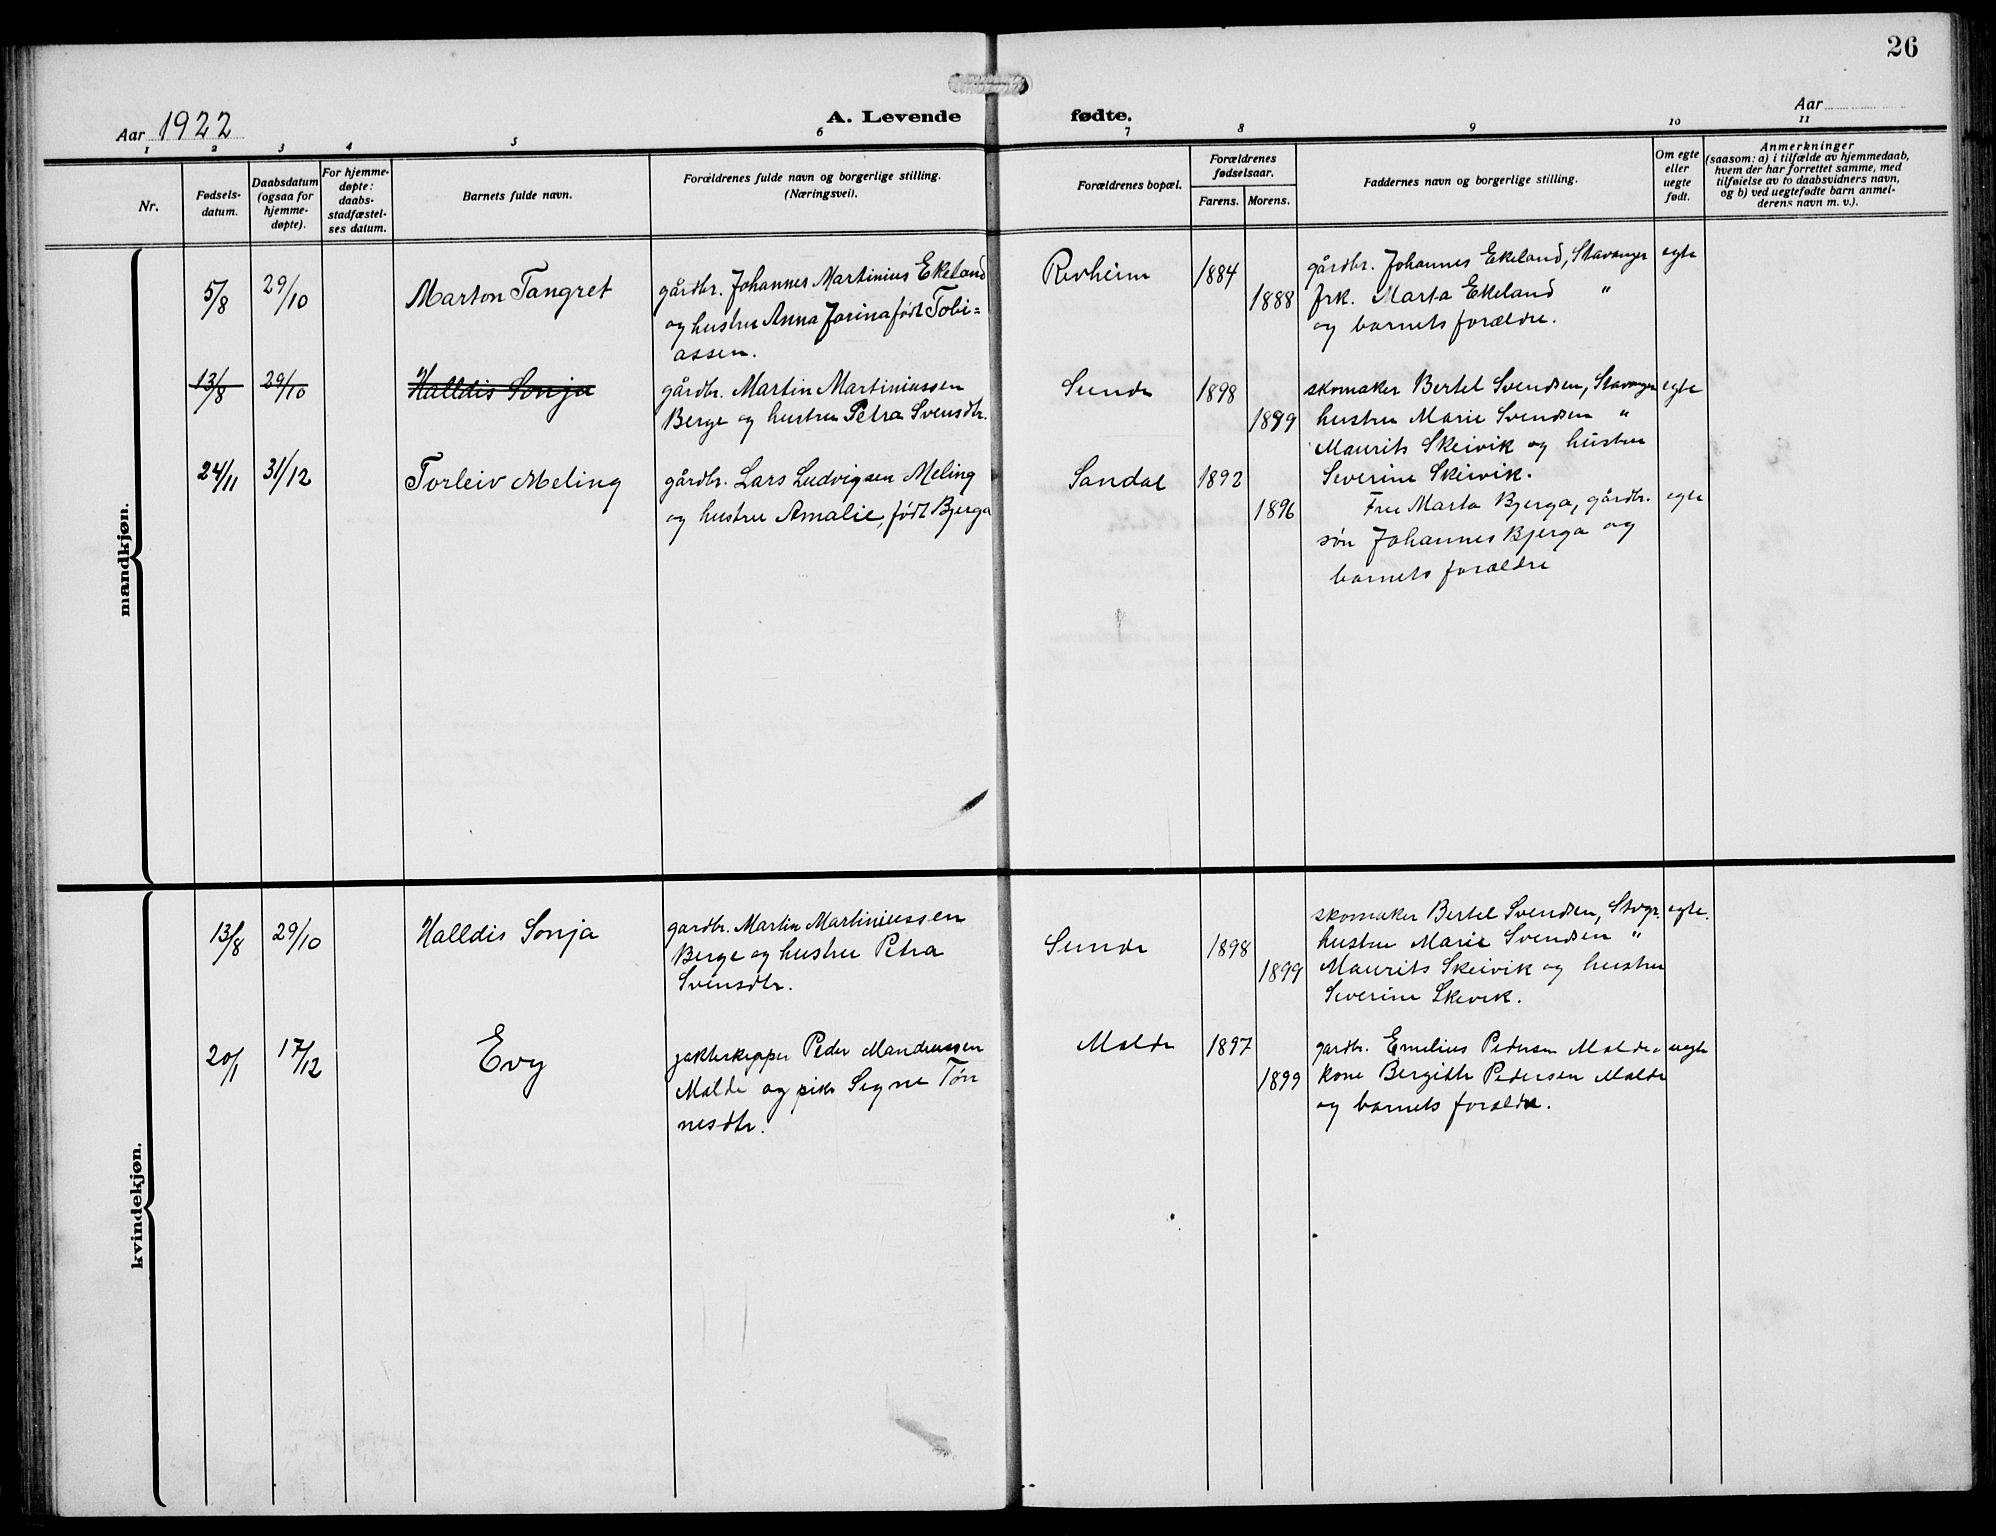 26
Aar 1922
A. Levende fødte.
Aar
1 2 3 4 5 6 7 8 9 10 11
Nr.
Fødsels-
datum.
Daabsdatum
(ogsaa for
hjemme-
døpte).
For hjemme-
døpte:
daabs-
stadfæstel-
ses datum.
Barnets fulde navn.
Forældrenes fulde navn og borgerlige stilling.
(Næringsveil).
Forældrenes bopæl.
Forældrenes
fødselsaar.
Farens. Morens.
Faddernes navn og borgerlige stilling.
Om egte
eller
uegte
født.
Anmerkninger
(saasom: a) i tilfælde av hjemmedaab,
hvem der har forrettet samme, med
tilføielse av to daabsvidners navn,
og b) ved uegtefødte barn anmel-
derens navn m. v.).
mandkjøn.
5/8 29/10 Marton Tangret
gårdbr. Johannes Martinius Ekeland
og hustru Anna Jorina født Tobi=
assen.
Revheim 1884 1888
gårdbr. Johannes Ekeland, Stavanger egte
frk. Marta Ekeland "
og barnets forældre.
13/8 29/10 Halldis Sonja
gårdbr. Martin Martiniussen
Berge og hustru Petra Svensdtr.
Sunde 1898 1899
skomaker Bertel Svendsen, Stavanger egte
hustru Marie Svendsen "
Maurits Skeivik og hustru
Severine Skeivik.
24/11 31/12 Torleiv Meling
gårdbr. Lars Ludvigsen Meling
og hustru Amalie, født Bjerga
Sandal 1892 1896
Fru Marta Bjerga, gårdbr. egte
søn Johannes Bjerga og
barnets forældre
kvindekjøn.
13/8 29/10 Halldis Sonja
gardbr. Martin Martiniussen
Berge og hustru Petra
Svensdtr.
Sunde 1898 1899
skomaker Bertel Svendsen, Stvgr. egte.
hustru Marie Svendsen "
Maurits Skeivik og hustru
Severine Skeivik.
20/1 17/12 Evy
jakteskipper Peder Mandrussen
Malde og pike Signe Tøn
nesdtr.
Malde 1897 1899
gardbr. Emelius Pedersen Malde uegte
kone Bergitte Pedersen Malde
og barnets forældre.